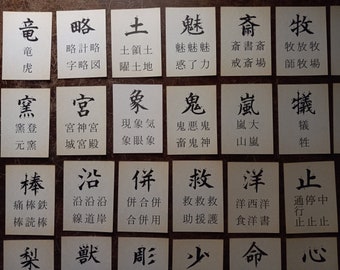 竜
竜虎
略
略図
計略
略字
土
土地
領土
土曜
魅
魅力
魅了
魅惑
斎
斎場
書斎
斎戒
牧
牧場
放牧
牧師
窯
登窯
窯元
宮
宮殿
神宮
宮城
象
気象
象眼
現象
鬼
鬼神
悪鬼
鬼畜
嵐
大嵐
嵐山
犠
犠牲
棒
鉄棒
棒読
痛棒
沿
沿岸
沿道
沿線
併
併用
合併
併合
救
救護
救援
救助
洋
洋書
西洋
洋食
止
中止
停止
通行止
梨
獣
彫
少
命
心